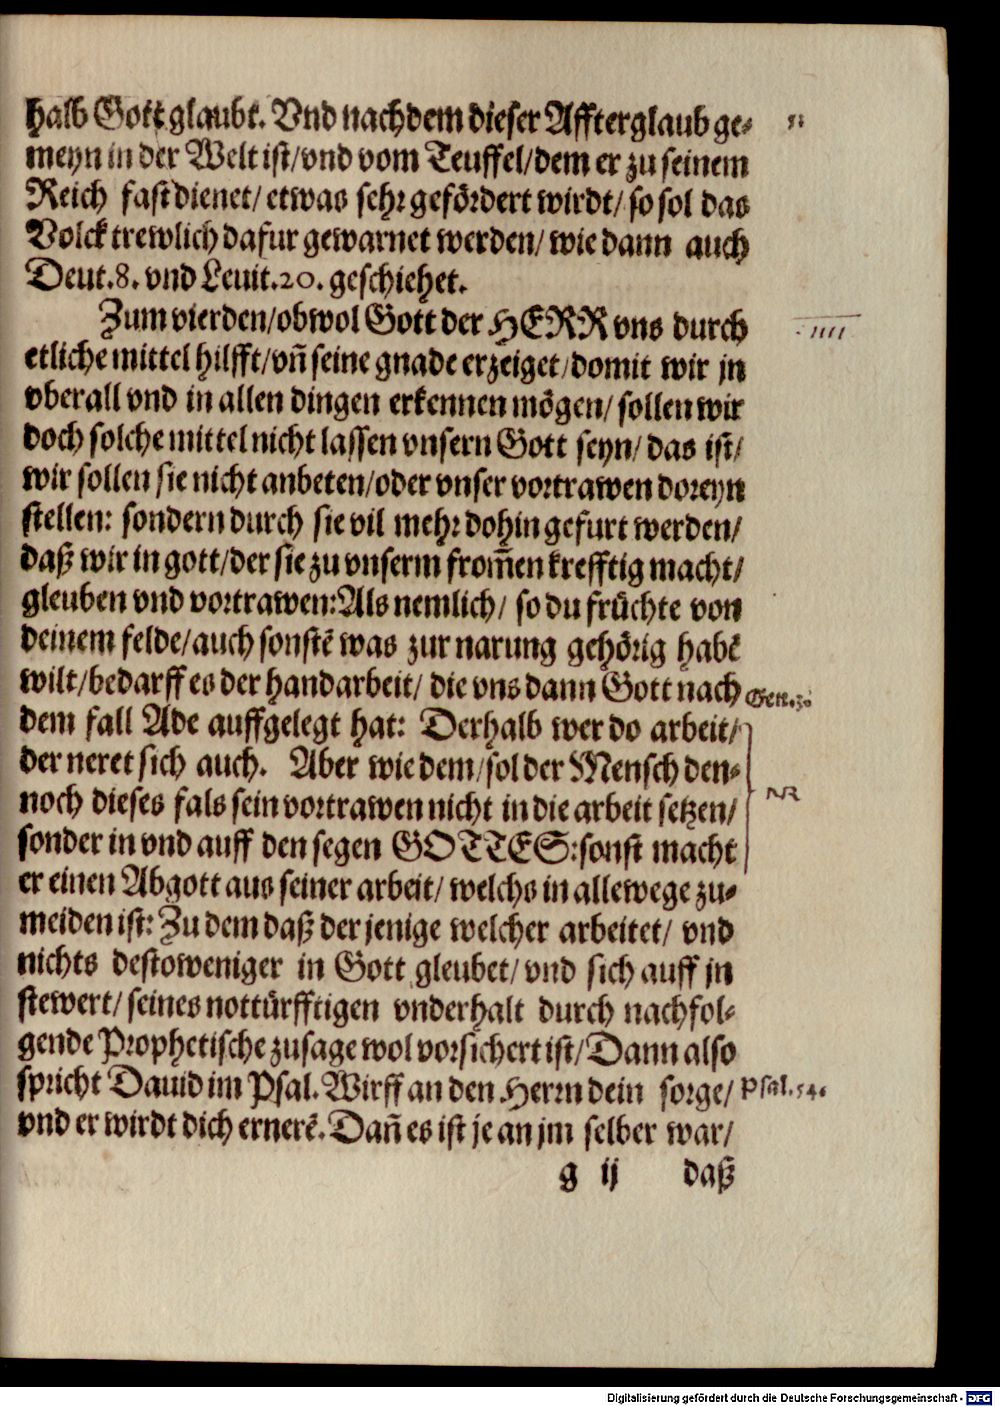 halb Gott glaubt. Vnd nachdem dieser Affterglaub ge-
meyn in der Welt ist/vnd vom Teuffel/dem er zu seinem
Reich fast dienet/ etwas sehr gefördert wirdt/ so sol das
Volck trewlich dafur gewarnet werden/ wie dann auch
Deut.8. vnd Leuit.20. geschiehet.
Zum vierden/obwol Gott der HERR vns durch
etliche mittel hilfft/vñ seine gnade erzeiget/domit wir jn
vberall vnd in allen dingen erkennen mögen/ sollen wir
doch solche mittel nicht lassen vnsern Gott seyn/ das ist/
wir sollen sie nicht anbeten/oder vnser vortrawen doreyn
stellen: sondern durch sie vil mehr dohin gefurt werden/
daß wir in gott/der sie zu vnserm from̃en krefftig macht/
gleuben vnd vortrawen:Als nemlich/ so du früchte von
deinem felde/auch sonstẽ was zur narung gehörig habẽ
wilt/bedarff es der handarbeit/ die vns dann Gott nach
Gen.3.
dem fall Ade auffgelegt hat: Derhalb wer do arbeit/
der neret sich auch. Aber wie dem/sol der Mensch den-
noch dieses fals sein vortrawen nicht in die arbeit setzen/
NR
sonder in vnd auff den segen GOTTES:sonst macht
er einen Abgott aus seiner arbeit/ welchs in allewege zu-
meiden ist: Zu dem daß der jenige welcher arbeitet/ vnd
nichts destoweniger in Gott gleubet/ vnd sich auff jn
stewert/ seines nottürfftigen vnderhalt durch nachfol-
gende Prophetische zusage wol vorsichert ist/Dann also
spricht Dauid im Psal. Wirff an den Herrn dein sorge/
Psal.54.
vnd er wirdt dich ernerẽ. Dañ es ist je an jm selber war/
g ij daß
Digitalisierung gefördert durch die Deutsche Forschungsgemeinschaft - DFG